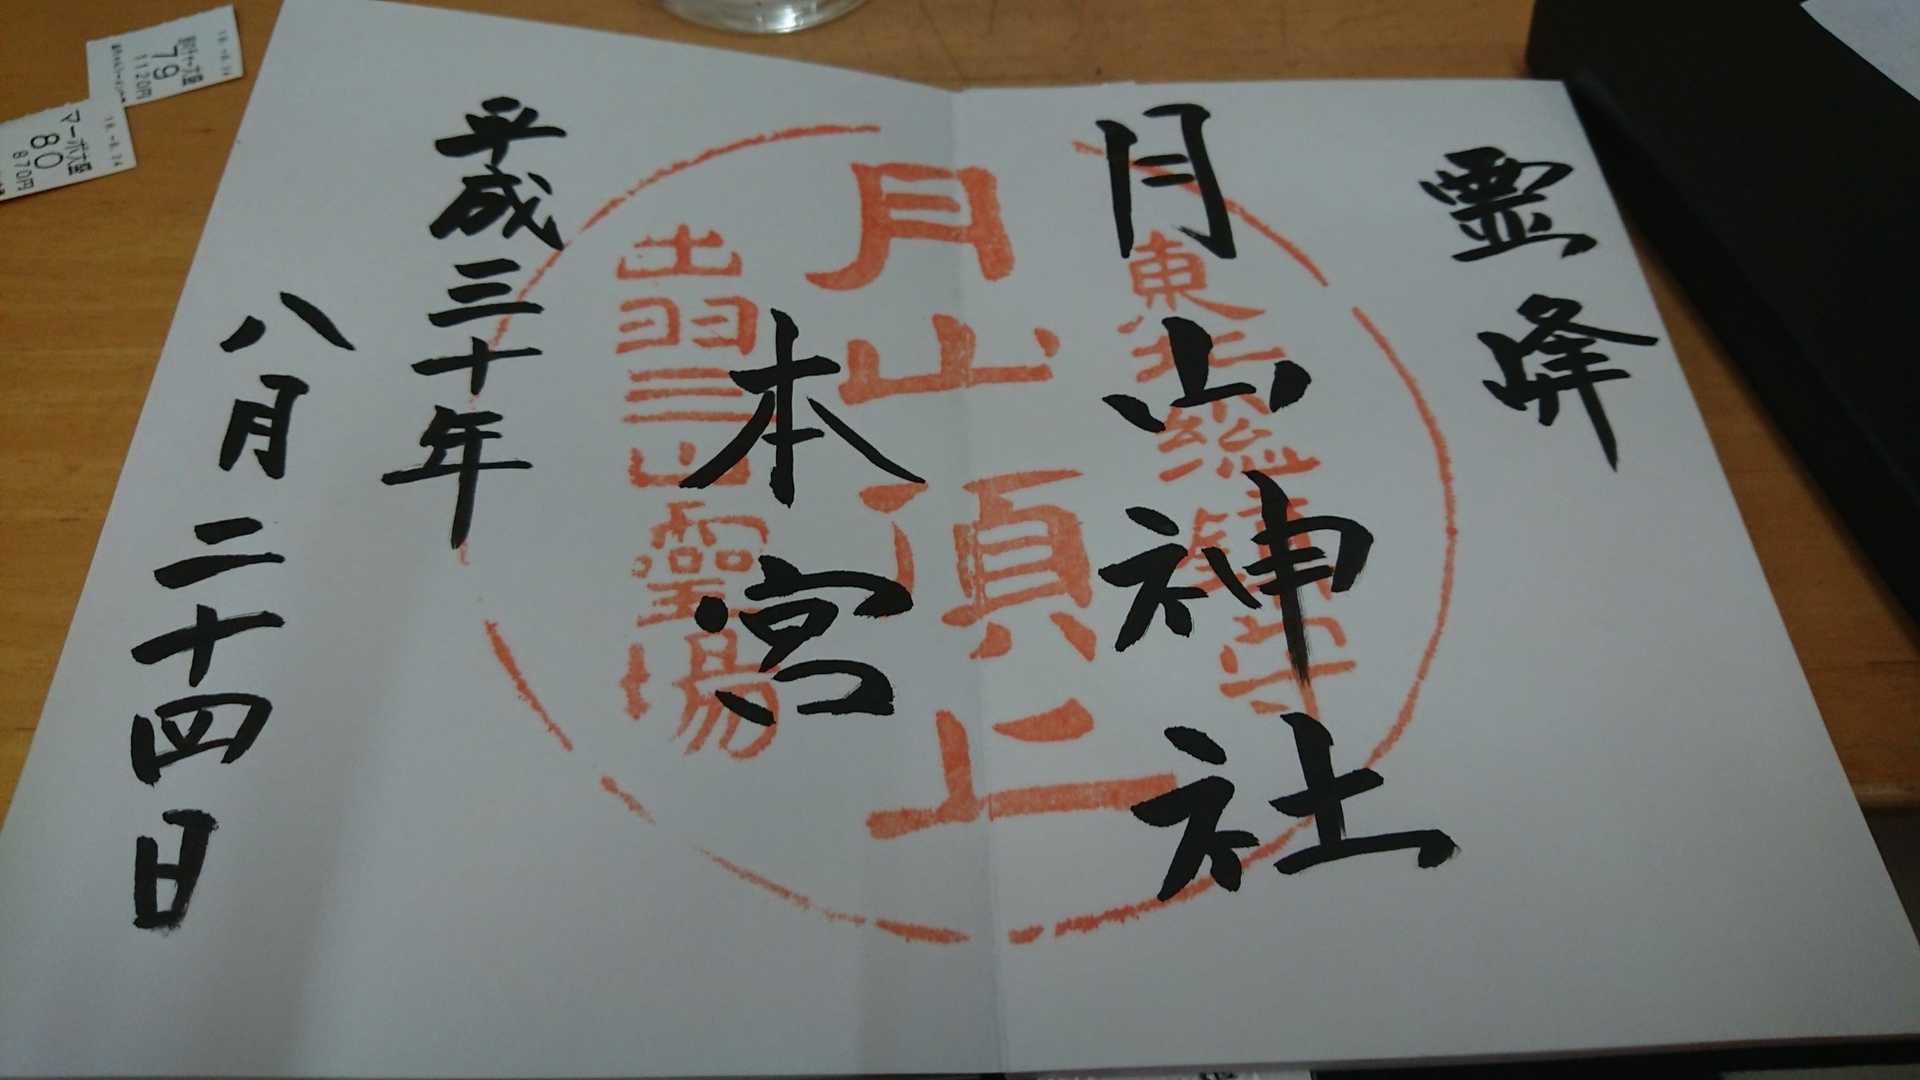 霊峰
月山神社
本宮
平成三十年
八月二十四日
東北総鎮守
月山頂上
出羽三山霊場
18.-8.24
79
1120円
18.-8.24
マーボ大盛
80
870円